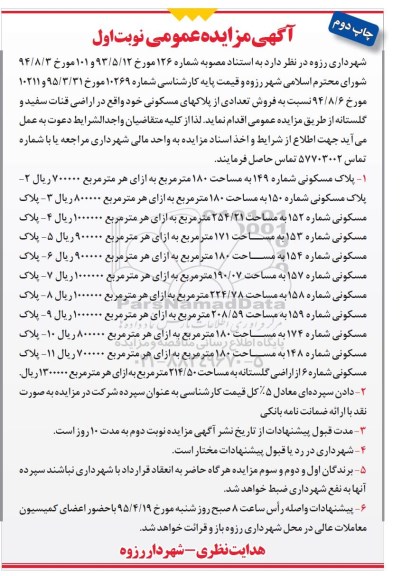 چاپ دوم
آگهی مزایده عمومی نوبت اول
شهرداری رزوه در نظر دارد به استناد مصوبه شماره ۱۲۶ مورخ ۹۳/۵/۱۲ و ۱۰۱ مورخ ۹۴/۸/۳
شورای محترم اسلامی شهر رزوه و قیمت پایه کارشناسی شماره ۱۰۲۶۹ مورخ ۹۵/۳/۳۱ و ۱۰۲۱۱
مورخ ۹۴/۸/۶ نسبت به فروش تعدادی از پلاکهای مسکونی خود واقع در اراضی قنات سفید و
گلستانه از طریق مزایده عمومی اقدام نماید. لذا از کلیه متقاضیان واجدالشرایط دعوت به عمل
می آید جهت اطلاع از شرایط و اخذ اسناد مزایده به واحد مالی شهرداری مراجعه یا با شماره
تماس ۵۷۷۰۳۰۰۲ تماس حاصل فرمایند.
۱- پلاک مسکونی شماره ۱۴۹ به مساحت ۱۸۰ مترمربع به ازای هر مترمربع ۷۰۰۰۰۰ ریال ۲-
پلاک مسکونی شماره ۱۵۰ به مساحت ۱۸۰ مترمربع به ازای هر مترمربع ۸۰۰۰۰۰ ریال ۳- پلاک
مسکونی شماره ۱۵۲ به مساحت ۲۵۴/۲۱ مترمربع به ازای هر مترمربع ۱۰۰۰۰۰۰ ریال ۴- پلاک
مسکونی شماره ۱۵۳ به مساحت ۱۷۱ مترمربع به ازای هر مترمربع ۹۰۰۰۰۰ ریال ۵- پلاک
مسکونی شماره ۱۵۴ به مساحت ۱۸۰ مترمربع به ازای هر مترمربع ۹۰۰۰۰۰ ریال ۶- پلاک
مسکونی شماره ۱۵۷ به مساحت ۱۹۰/۰۷ مترمربع به ازای هر مترمربع ۱۰۰۰۰۰۰ ریال ۷- پلاک
مسکونی شماره ۱۵۸ به مساحت ۲۲۴/۷۸ مترمربع به ازای هر مترمربع ۱۰۰۰۰۰۰ ریال ۸- پلاک
مسکونی شماره ۱۵۹ به مساحت ۲۰۸/۵۹ مترمربع به ازای هر مترمربع ۱۰۰۰۰۰۰ ریال ۹- پلاک
مسکونی شماره ۱۷۴ به مساحت ۱۸۰ مترمربع به ازای هر مترمربع ۸۰۰۰۰۰ ریال ۱۰- پلاک
مسکونی شماره ۱۴۸ به مساحت ۱۸۰ مترمربع به ازای هر مترمربع ۷۰۰۰۰۰ ریال ۱۱- پلاک
مسکونی شماره ۶ از اراضی گلستانه به مساحت ۲۱۴/۵۰ مترمربع به ازای هر مترمربع ۱۳۰۰۰۰۰ ریال.
۲- دادن سپرده‌ای معادل ۵٪ کل قیمت کارشناسی به عنوان سپرده شرکت در مزایده به صورت
نقد یا ارائه ضمانت نامه بانکی
۳- مدت قبول پیشنهادات از تاریخ نشر آگهی مزایده نوبت دوم به مدت ۱۰ روز است.
۴- شهرداری در رد یا قبول پیشنهادات مختار است.
۵- برندگان اول و دوم و سوم مزایده هرگاه حاضر به انعقاد قرارداد با شهرداری نباشند سپرده
آنها به نفع شهرداری ضبط خواهد شد.
۶- پیشنهادات واصله رأس ساعت ۸ صبح روز شنبه مورخ ۹۵/۴/۱۹ با حضور اعضای کمیسیون
معاملات عالی در محل شهرداری رزوه باز و قرائت خواهد شد.
هدایت نظری - شهردار رزوه